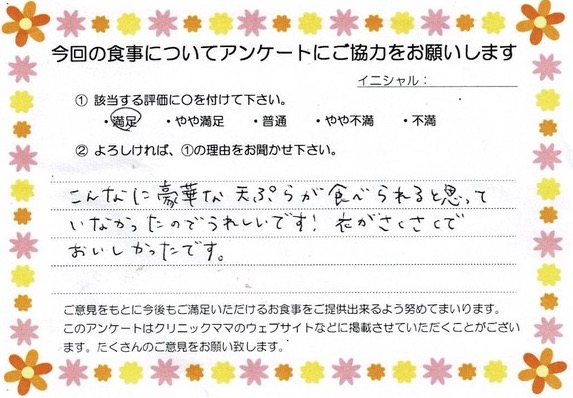 今回の食事についてアンケートにご協力をお願いします
イニシャル:
① 該当する評価に○を付けて下さい。
・満足 ・やや満足 ・普通 ・やや不満 ・不満
② よろしければ、①の理由をお聞かせ下さい。
こんなに豪華な天ぷらが食べられると思って
いなかったのでうれしいです! 衣がさくさくで
おいしかったです。
ご意見をもとに今後もご満足いただけるお食事をご提供出来るよう努めてまいります。
このアンケートはクリニックママのウェブサイトなどに掲載させていただくことがござい
ます。たくさんのご意見をお願い致します。